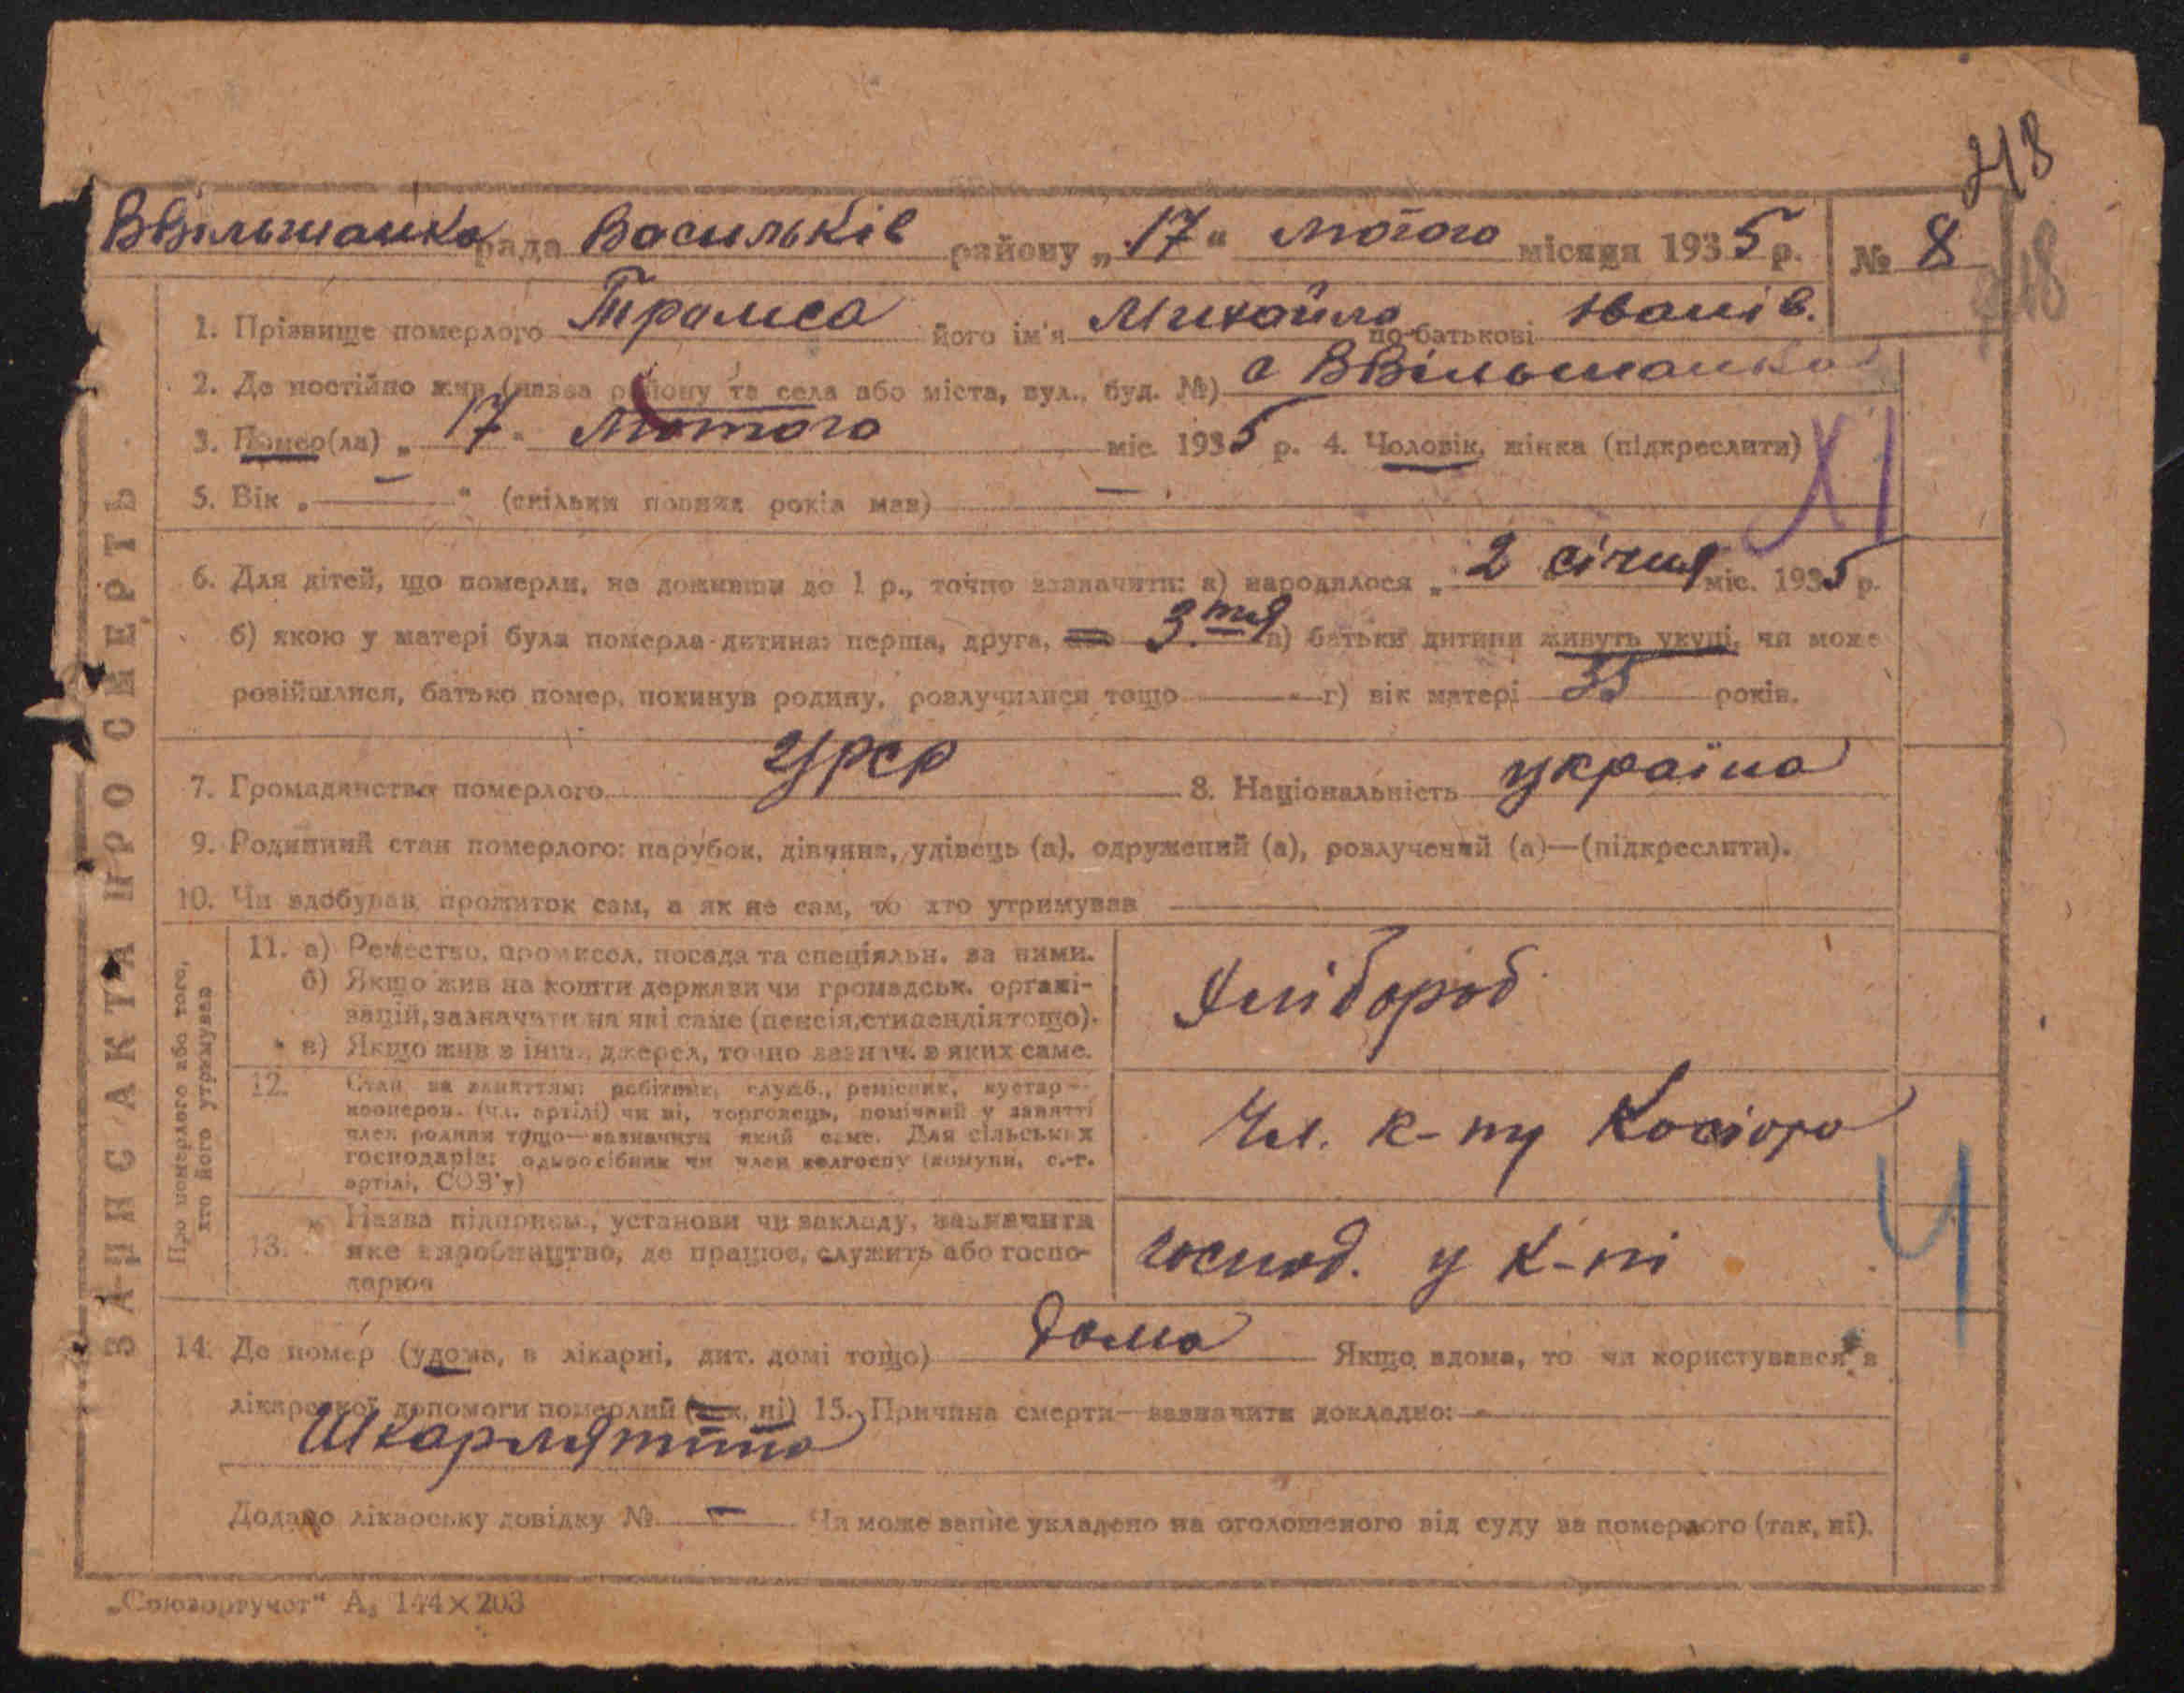 218
ВВільшанка рада Васильків району „17“ лютого місяця 1935 р. № 8
218
1. Прізвище померлого його ім'я Михайло по-батькові Іванів.
2. Де постійно жив (назва району та села або міста, вул., буд. №) с ВВільшанка
3. Помер(ла) „17“ Лютого міс. 1935 р. 4. Чоловік, жінка (підкреслити)
XI
5. Вік „—“ (скільки повних років мав) —
6. Для дітей, що померли, не доживши до 1 р., точно зазначити: а) народилося „2 січня міс. 1935 р.
б) якою у матері була померла дитина: перша, друга, або 3тя в) батьки дитини живуть укупі, чи може
розійшлися, батько помер, покинув родину, розлучилися тощо — г) вік матері 35 років.
7. Громадянство померлого УРСР 8. Національність україна
9. Родинний стан померлого: парубок, дівчина, удівець (а), одружений (а), розлучений (а)—(підкреслити).
10. Чи здобував прожиток сам, а як не сам, то хто утримував
ЗАПИС АКТА ПРО СМЕРТЬ
Про померлого або того,
хто його утримував
11. а) Ремество, промисел, посада та спеціяльн. за ними.
б) Якщо жив на кошти держави чи громадськ. органі-
зацій, зазначити на які саме (пенсія, стипендія тощо).
в) Якщо жив з інш. джерел, точно зазнач. з яких саме.
Хлібороб
12. Стан за заняттям: робітник, служб., ремісник, кустар—
кооперов. (чл. артілі) чи ні, торговець, помічний у занятті
член родини тощо—зазначити який саме. Для сільських
господарів: одноосібник чи член колгоспу (комуни, с.-г.
артілі, СОЗ'у)
Чл. к-пу Косіора
13. Назва підприєм., установи чи закладу, зазначити
яке виробництво, де працює, служить або госпо-
дарює
господ. у к-пі
4
14. Де помер (удома, в лікарні, дит. домі тощо) дома Якщо вдома, то чи користувався з
лікарської допомоги померлий (так, ні) 15. Причина смерти—зазначити докладно: —
Шкарлятина
Додано лікарську довідку № — Чи може запис укладено на оголошеного від суду за померлого (так, ні).
„Союзоргучет“ А5 144×203